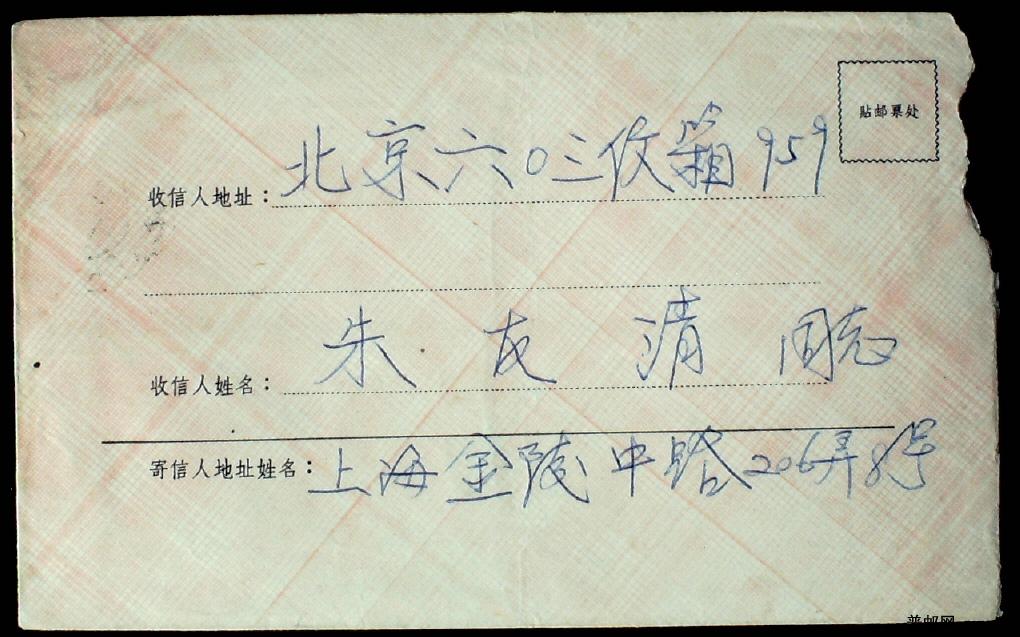 贴邮票处
收信人地址：北京六〇三伩箱959
收信人姓名：朱友清同志
寄信人地址姓名：上海金陵中路206弄8号